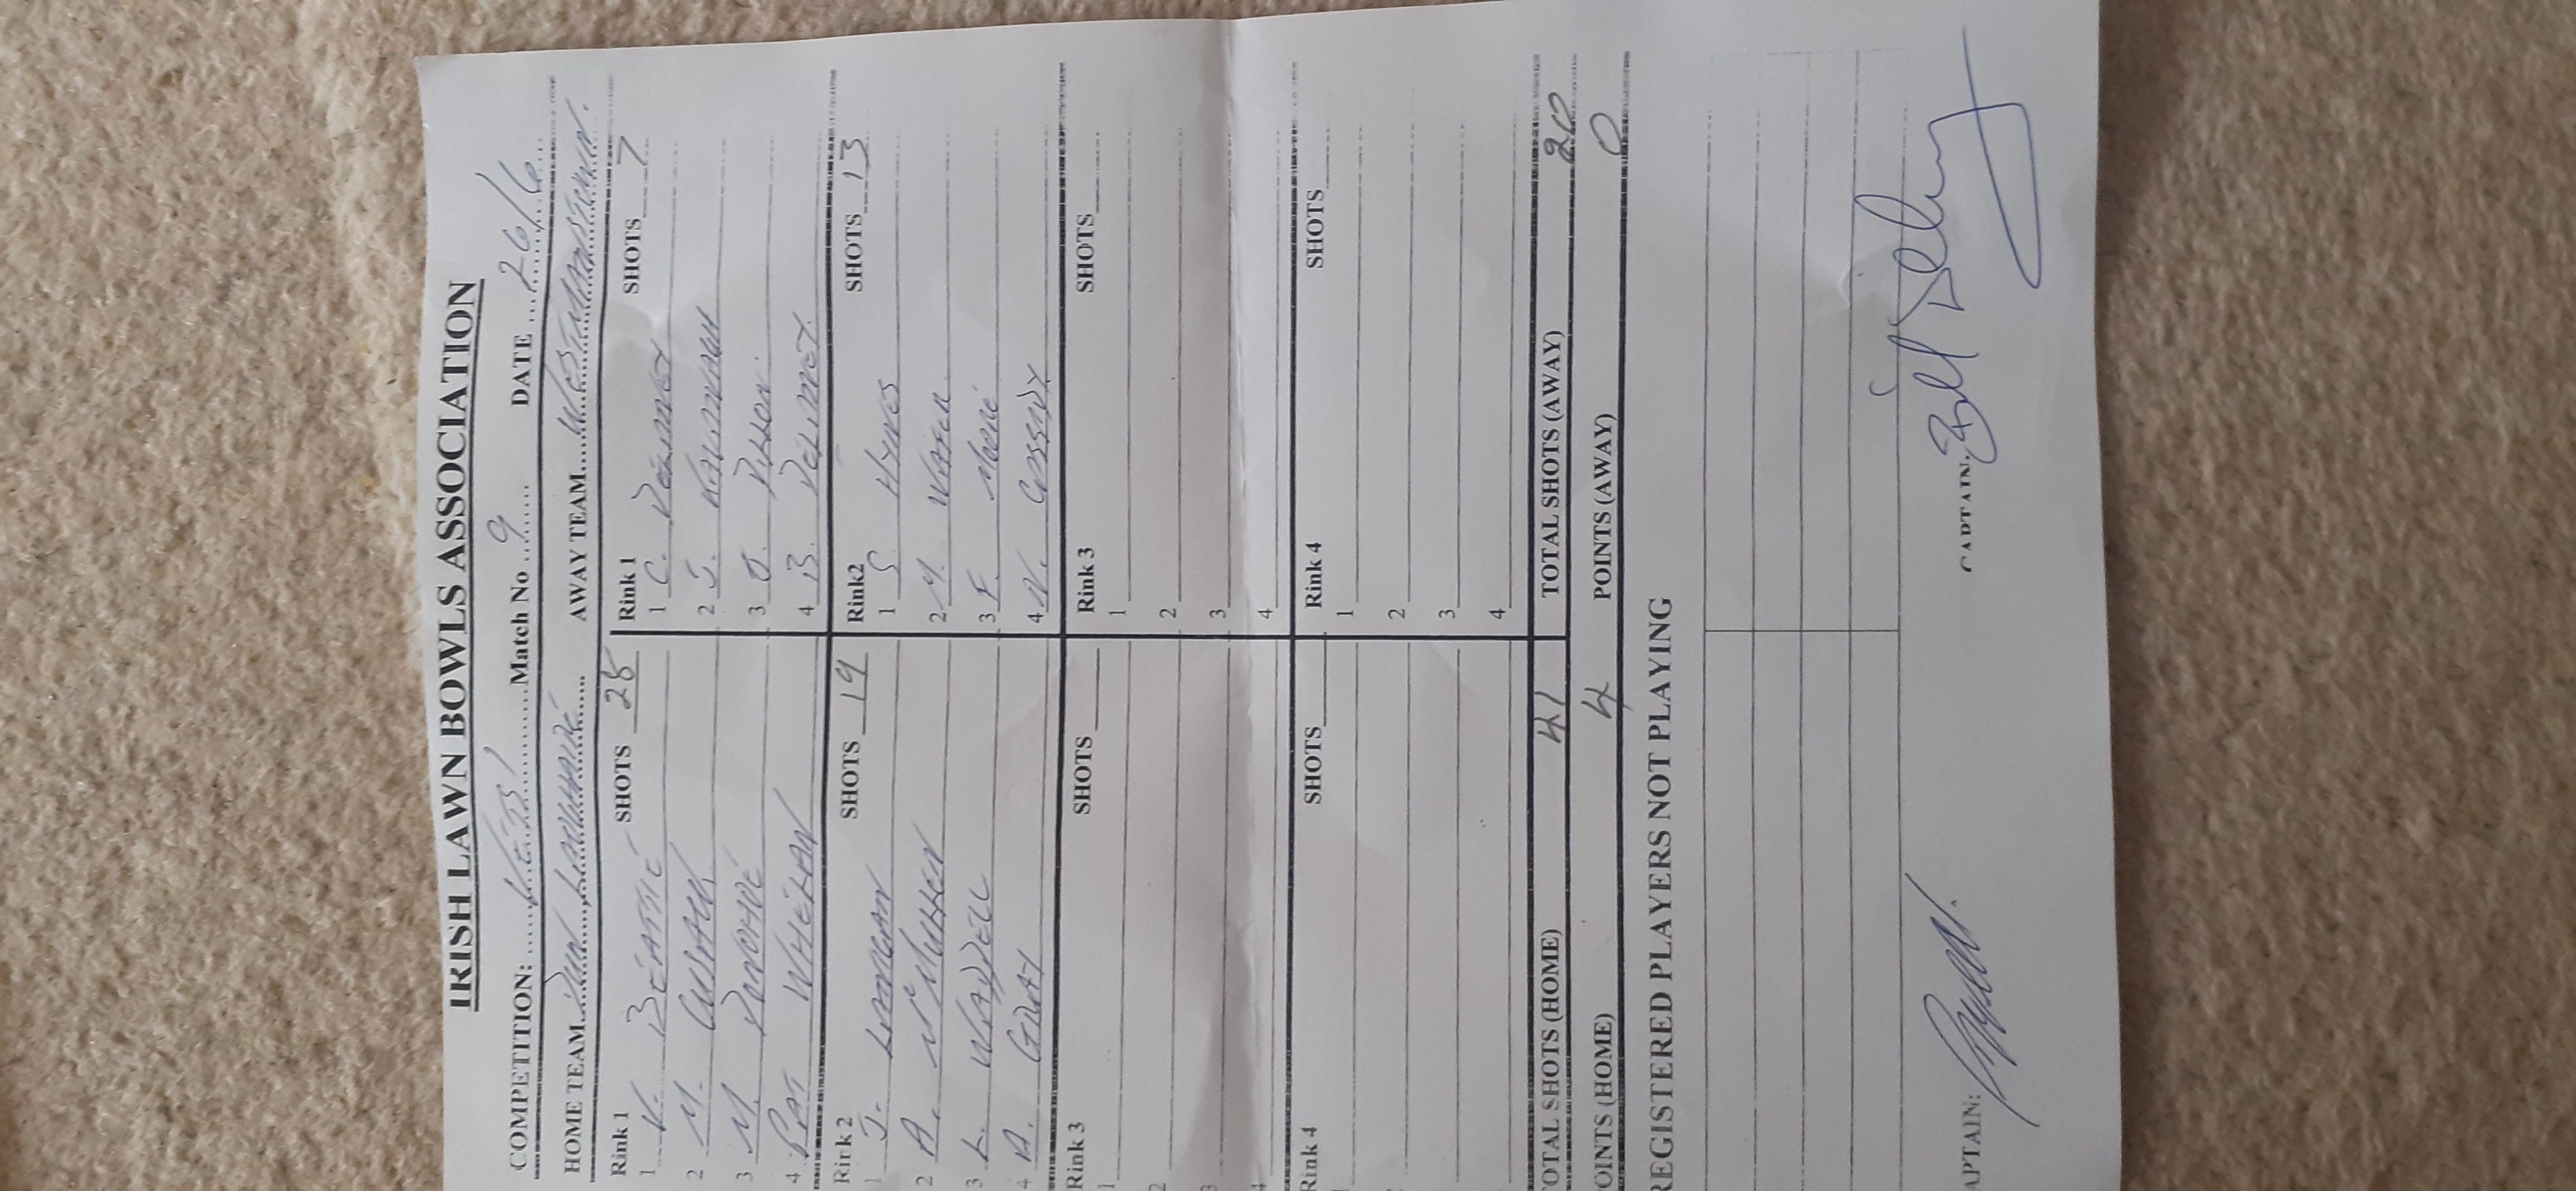 IRISH LAWN BOWLS ASSOCIATION
COMPETITION: ............ Match No ..9...... DATE ..26/6..
HOME TEAM..Dun Laoghaire...... AWAY TEAM...Westmanstown.
Rink 1 SHOTS Rink 1 SHOTS 7
1 V. BEATTIE 1 C. DELIMEY
2 M. CUSACK 2 J.
3 M. DONOHOE 3 J. DILLON
4 PAT WHELAN 4 B. DELIMEY
Rink 2 SHOTS 19 Rink2 SHOTS 13
1 J. LINNEGAN 1 S HYNES
2 A. McMULLEN 2 M. WALSH
3 L. WADDELL 3 F.
4 A. GRAY 4 N. CASSIDY
Rink 3 SHOTS Rink 3 SHOTS
1 1
2 2
3 3
4 4
Rink 4 SHOTS Rink 4 SHOTS
1 1
2 2
3
4
OTAL SHOTS (HOME) 41 TOTAL SHOTS (AWAY) 20
OINTS (HOME) 4 POINTS (AWAY) 0
REGISTERED PLAYERS NOT PLAYING
APTAIN: CAPTAIN. Bill